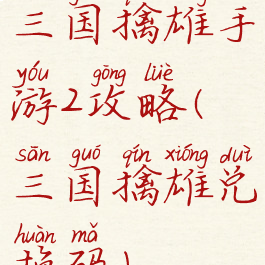 三国擒雄手
yóu gōng lüè
游2攻略(
sān guó qín xióng duì
三国擒雄兑
huàn mǎ
换码)